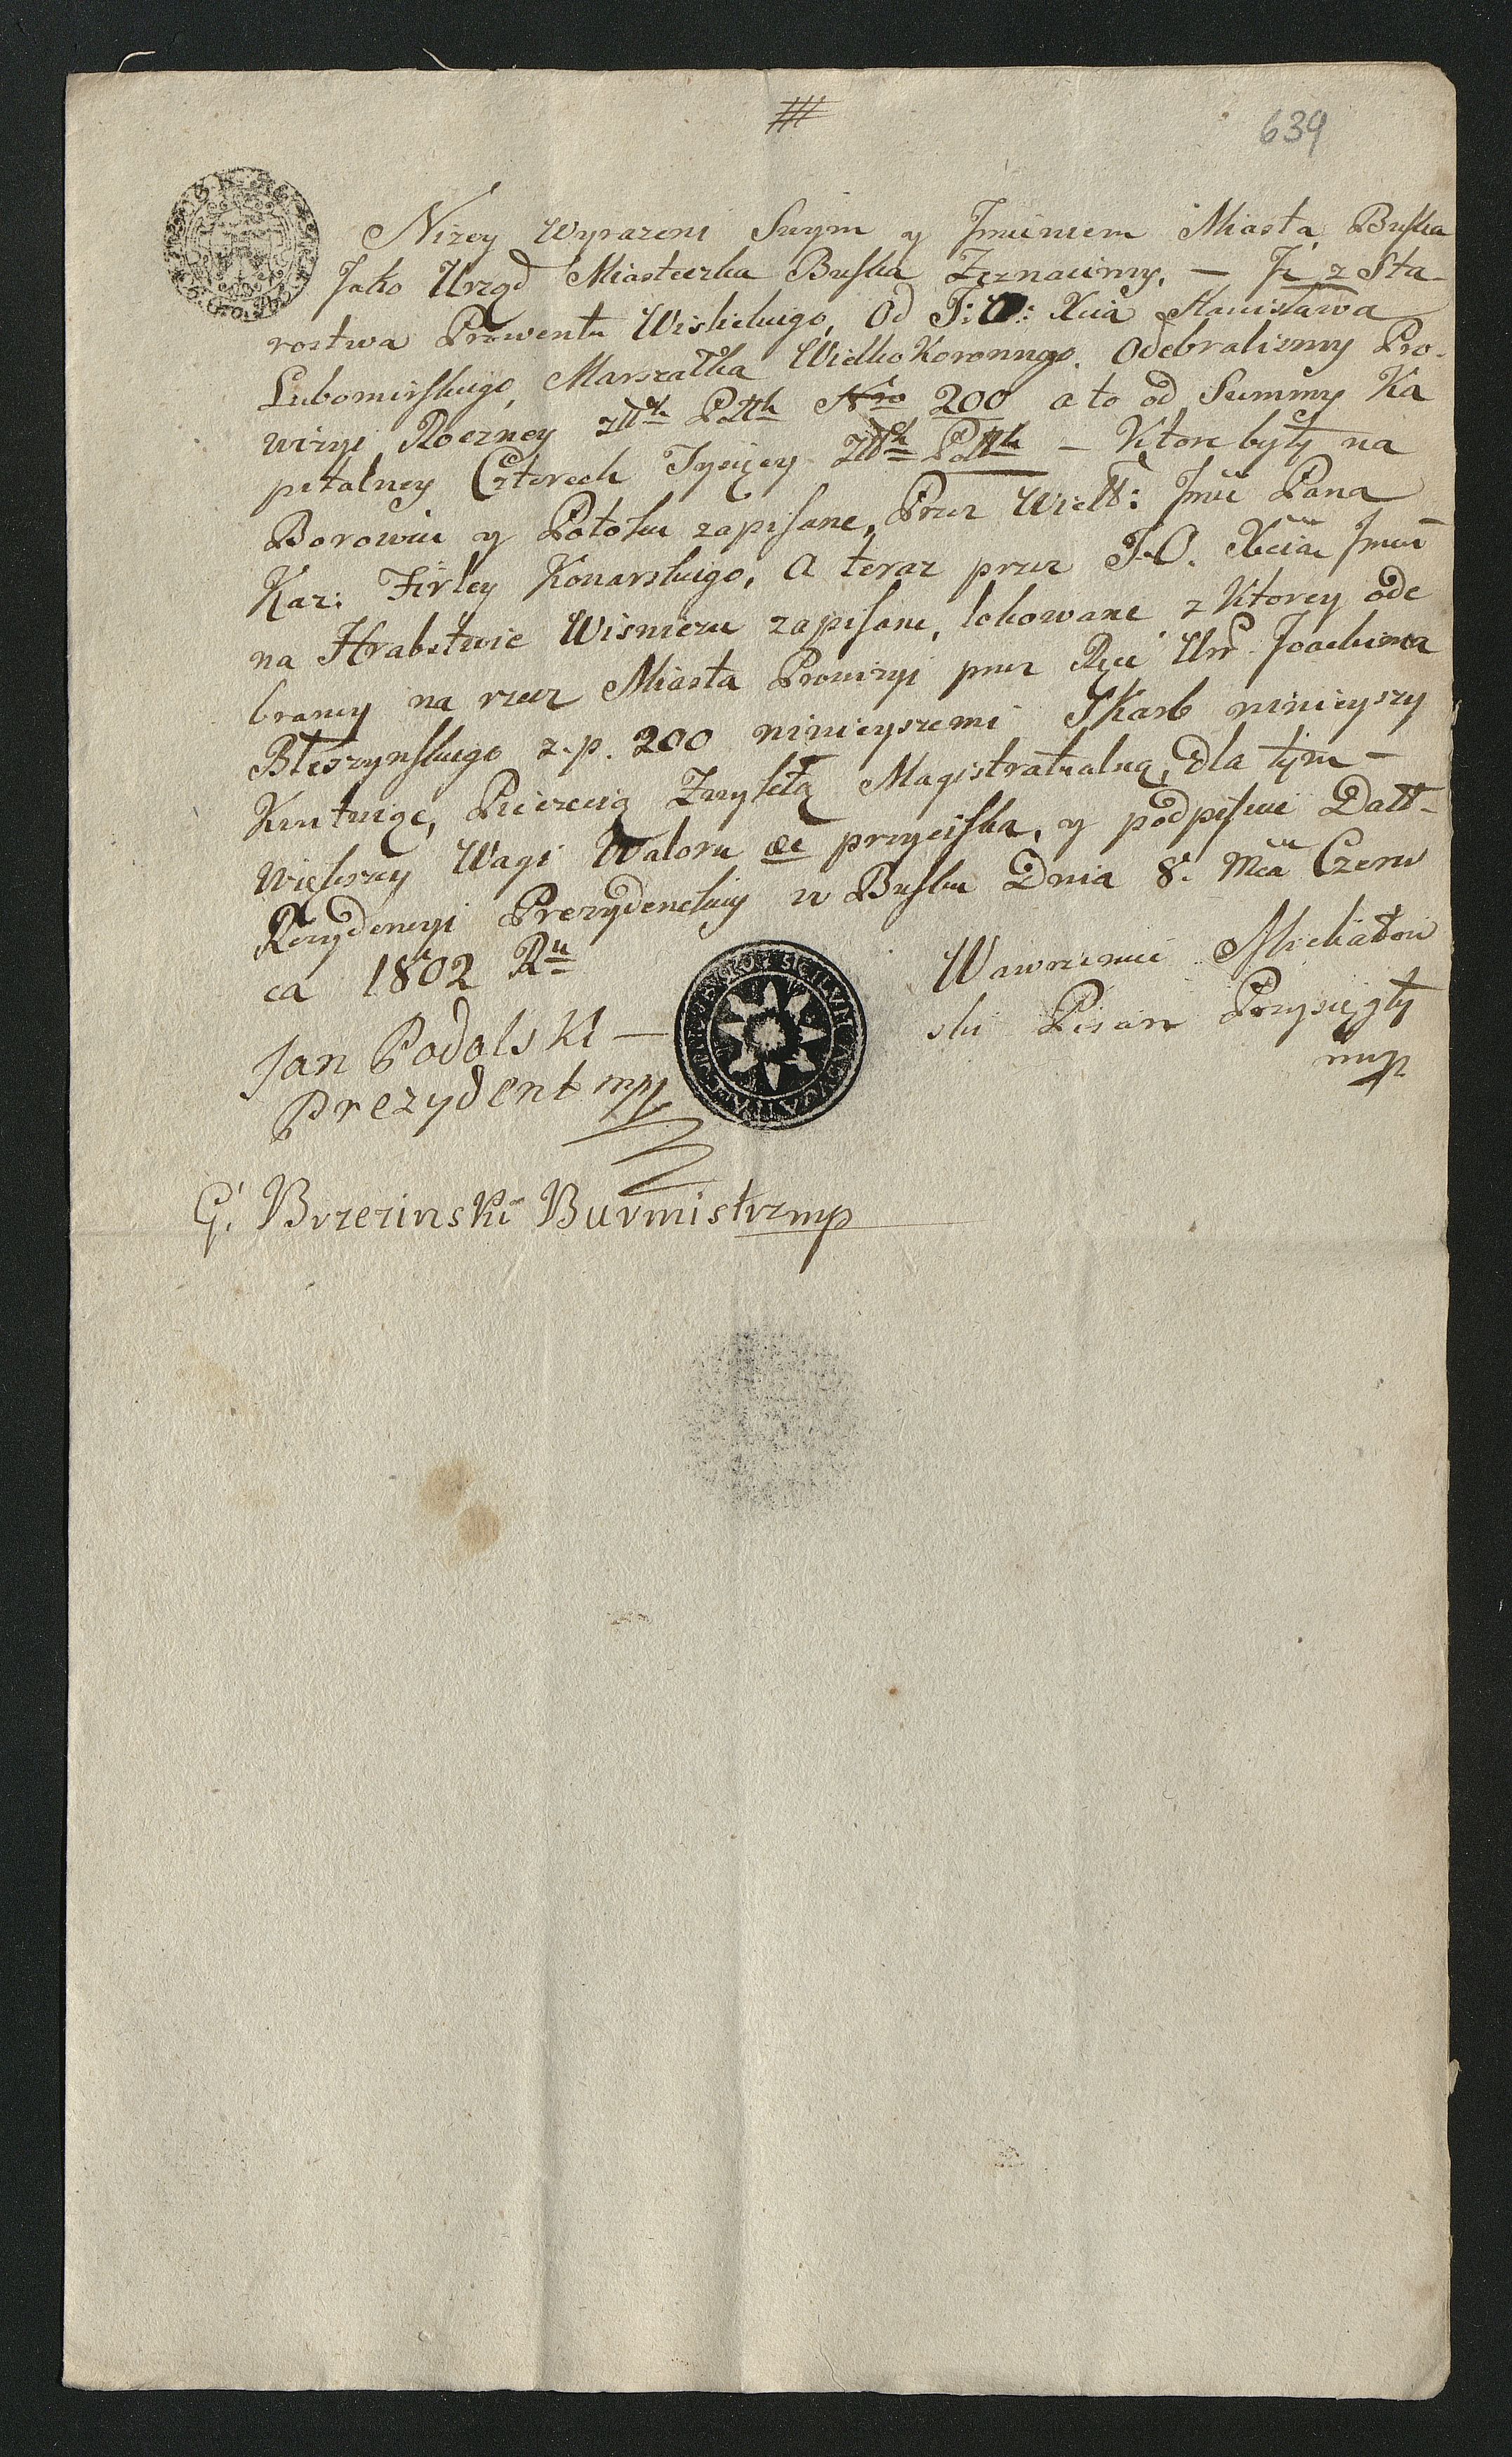 639
Nizey Wyrazeni Swym y Jmieniem Miasta Buska
Jako Urząd Miasteczka Buska Zeznaiemy, — Iż z Sta-
rostwa Prowentu Wislickiego, Od J: O: Xcia Stanisława
Lubomirskiego, Marszałka Wielko Koronnego. Odebralismy Pro-
wizyi Roczney złłch Pollch Nro 200 a to od Summy Ka
pitalney Czterech Tysięcy Złłch Pollch — Ktore były na
Borowiu y Potoku zapisane, Przez Wiell: Jmci Pana
Kaz: Firley Konarskiego, a teraz przez J.O. Xcia Jmci
na Hrabstwie Wisniczu zapisane, lokowane z Ktorey ode
braney na rzecz Miasta Prowizyi przez Ręce Ur. Joachima
Bleszynskiego z. p. 200 ninieyszemi Skarb ninieyszy
Kwituige, Pieczęcią Zwykłą Magistratualną, dla tym —
większey Wagi Waloru &c przyciska, y podpisuie Datt-
Rezydencyi Prezydenckiey w Busku Dnia 8. Mca Czerw
ca 1802 Ru
Wawrzeniec Michałow
ski Pisarz Przysięgły
mp
Jan Podolski —
Prezydent mp
G. Brzezinski Burmistrz mp